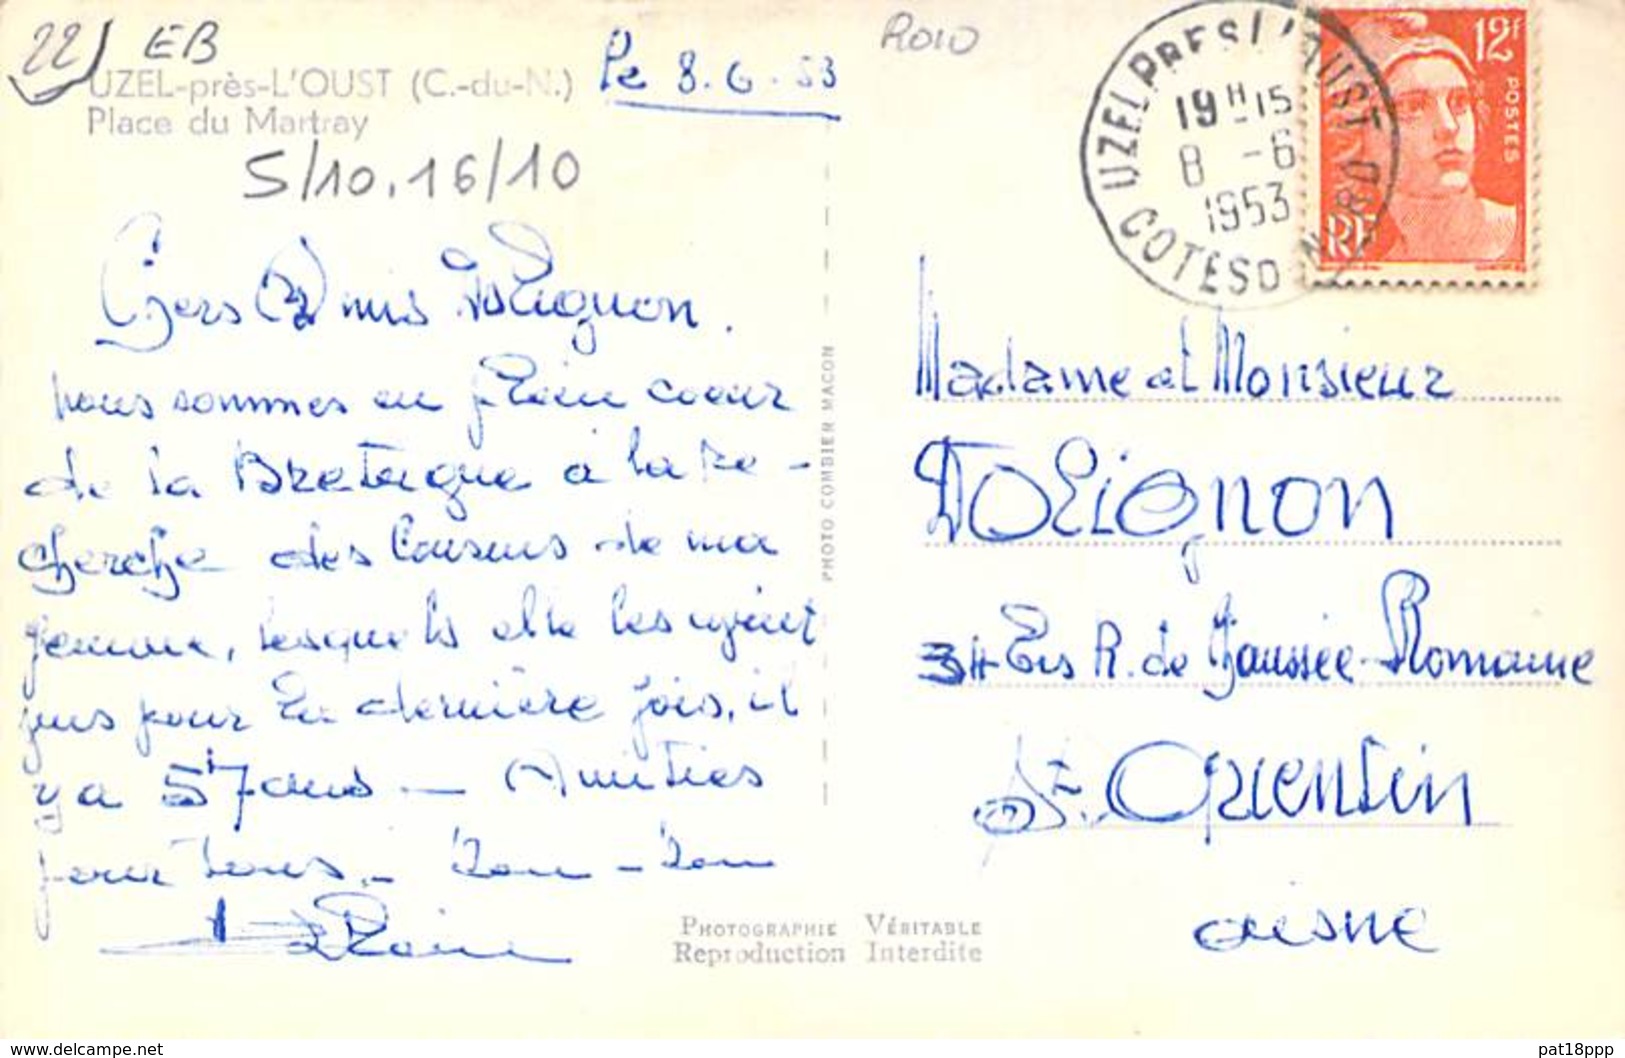 22 EB
UZEL-près-L'OUST (C.-du-N.)
Place du Martray
Le 8.6.53
R010
S/10.16/10
UZEL PRES L'OUST
COTES DU NORD
19H15
8 -6
1953
12f
POSTES
RF
Chers Amis Dolignon.
nous sommes en plein coeur
de la Bretagne à la Re-
cherche des Cousins de ma
femme, lesquels elle les ayant
vus pour la dernière fois, il
y a 57 ans — Amitiés
pour tous. –
PHOTO COMBIER MACON
Madame et Monsieur
DOLIGNON
34 Bis R. de Chaussée-Romaine
St. Quentin
Aisne
PHOTOGRAPHIE VÉRITABLE
Reproduction Interdite
https://www.delcampe.net
pat18ppp